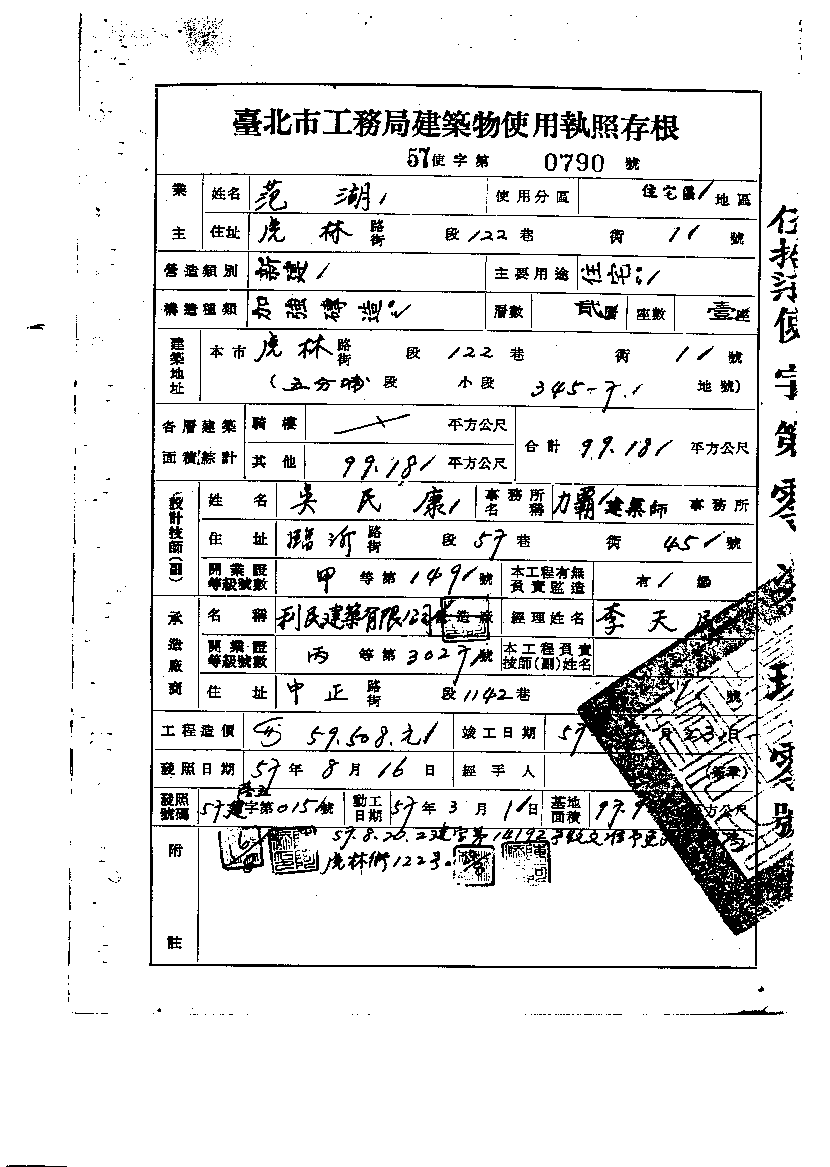 臺北市工務局建築物使用執照存根
57使字第 0790 號
業主 姓名 范湖 使用分區 住宅區 地區
住址 虎林 路街 段 122 巷 衖 11 號
營造類別 新建 主要用途 住宅
構造種類 加強磚造 層數 貳層 座數 壹座
建築地址 本市 虎林 路街 段 122 巷 衖 11 號
(五分埔 段 小段 345-7 地號)
各層建築面積綜計 騎樓 平方公尺 合計 99.18 平方公尺
其他 99.18 平方公尺
設計技師(副) 姓名 吳民康 事務所名稱 力霸建築師 事務所
住址 臨沂 路街 段 57 巷 衖 45 號
開業證等級號數 甲 等第 1491 號 本工程有無負責監造 有
承造廠商 名稱 利民建築有限公司 營造廠 經理姓名 李天
開業證等級號數 丙 等第 3027 號 本工程負責技師(副)姓名
住址 中正 路街 段 1142 巷 號
工程造價 59.508.元 竣工日期 57 月 23 日
發照日期 57 年 8 月 16 日 經手人 (簽章)
發照號碼 57 建字第 0151 號 動工日期 57 年 3 月 1 日 基地面積 97.9 平方公尺
附註 57.8.20.
虎林街122
伍拾柒使字第零 玖零號